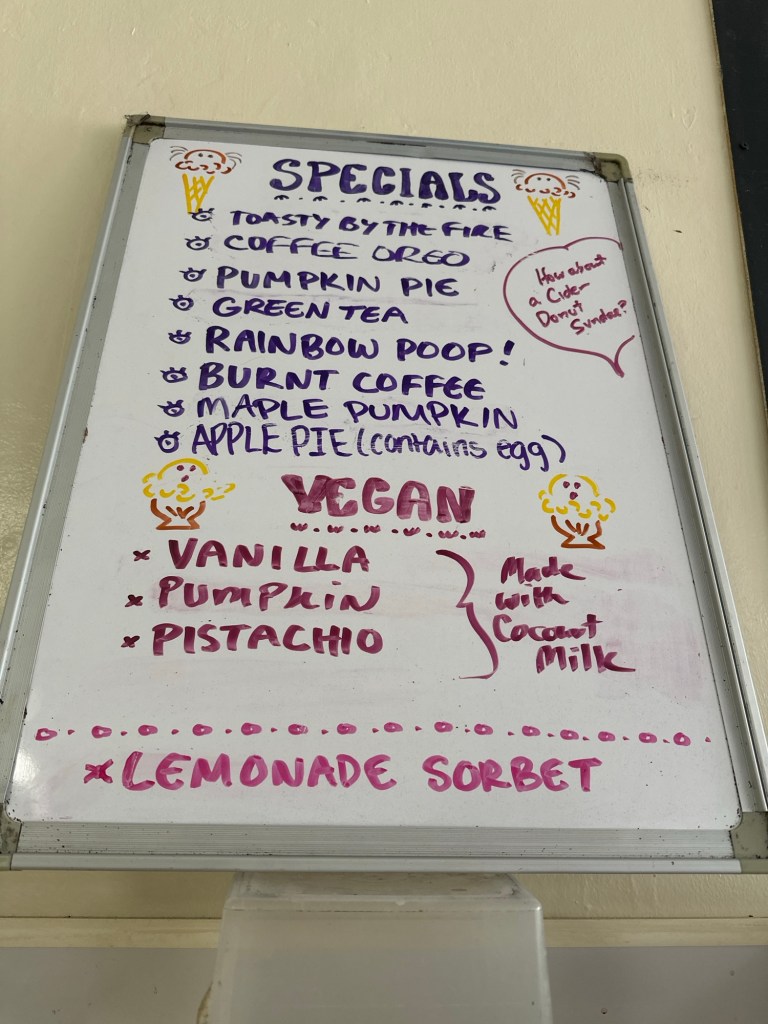 SPECIALS
TOASTY BY THE FIRE
COFFEE OREO
PUMPKIN PIE
GREEN TEA
RAINBOW POOP!
BURNT COFFEE
MAPLE PUMPKIN
APPLE PIE (contains egg)
How about
a Cider
Donut
Sundae?
VEGAN
VANILLA
PUMPKiN
PISTACHIO
Made
with
Coconut
Milk
LEMONADE SORBET